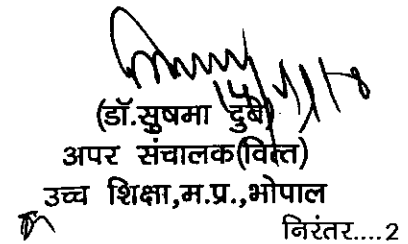 (डॉ.सुषमा दुबे)
अपर संचालक(वित्त)
उच्च शिक्षा,म.प्र.,भोपाल
निरंतर....2